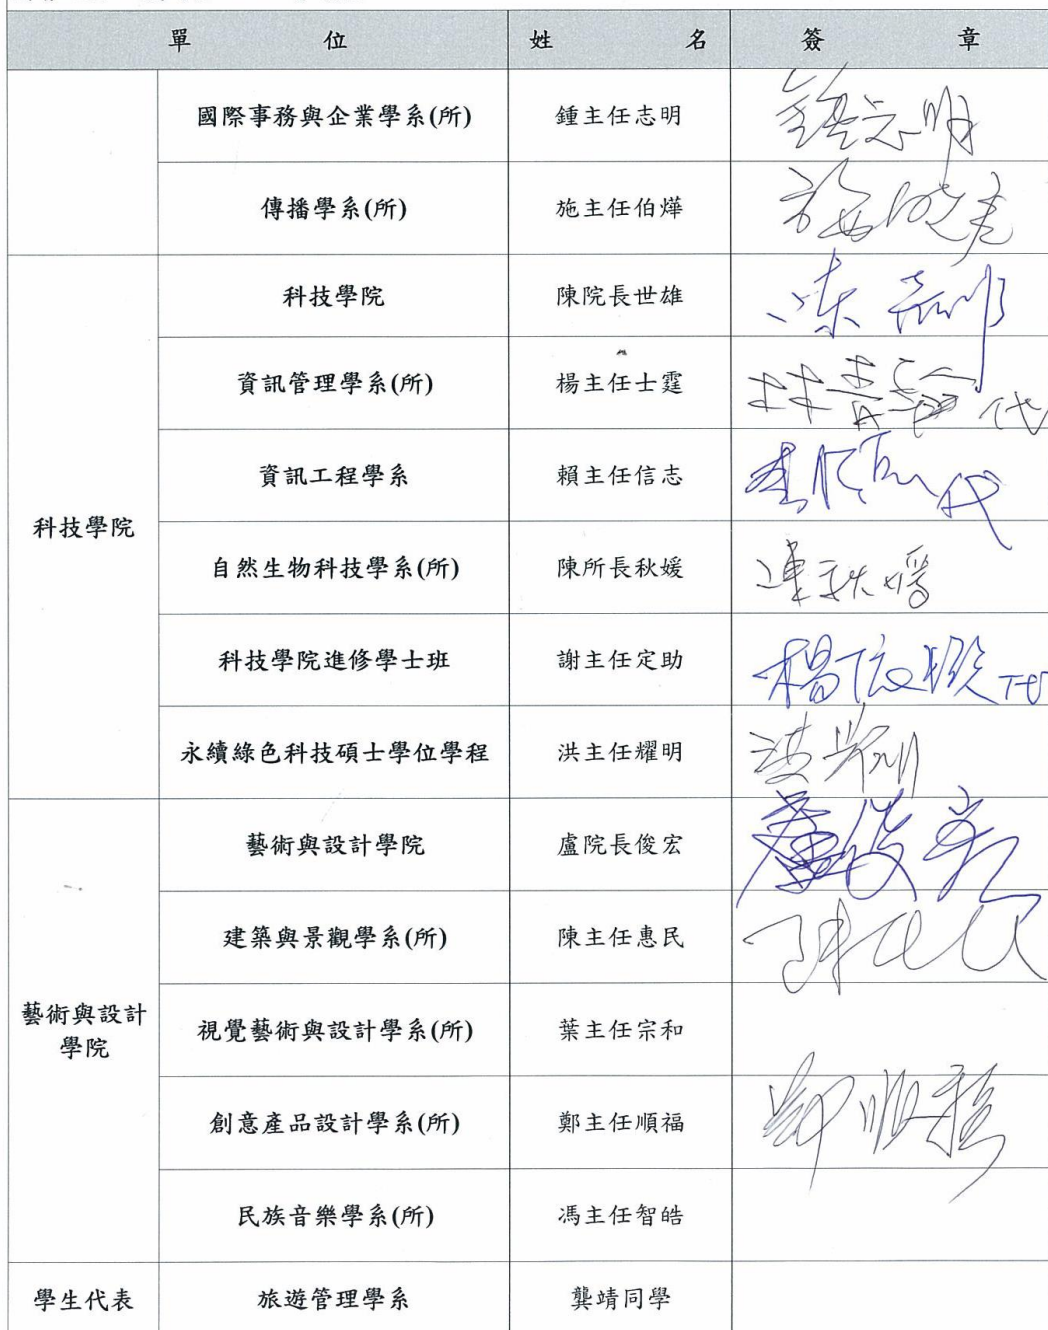 單 位 姓 名 簽 章
國際事務與企業學系(所) 鍾主任志明 鍾志明
傳播學系(所) 施主任伯燁 施伯燁
科技學院 陳院長世雄 陳
資訊管理學系(所) 楊主任士霆 代
資訊工程學系 賴主任信志 代
科技學院
自然生物科技學系(所) 陳所長秋媛 陳秋媛
科技學院進修學士班 謝主任定助 楊
永續綠色科技碩士學位學程 洪主任耀明 洪
藝術與設計學院 盧院長俊宏 盧俊宏
建築與景觀學系(所) 陳主任惠民 陳
藝術與設計
學院
視覺藝術與設計學系(所) 葉主任宗和
創意產品設計學系(所) 鄭主任順福 鄭順福
民族音樂學系(所) 馮主任智皓
學生代表 旅遊管理學系 龔靖同學